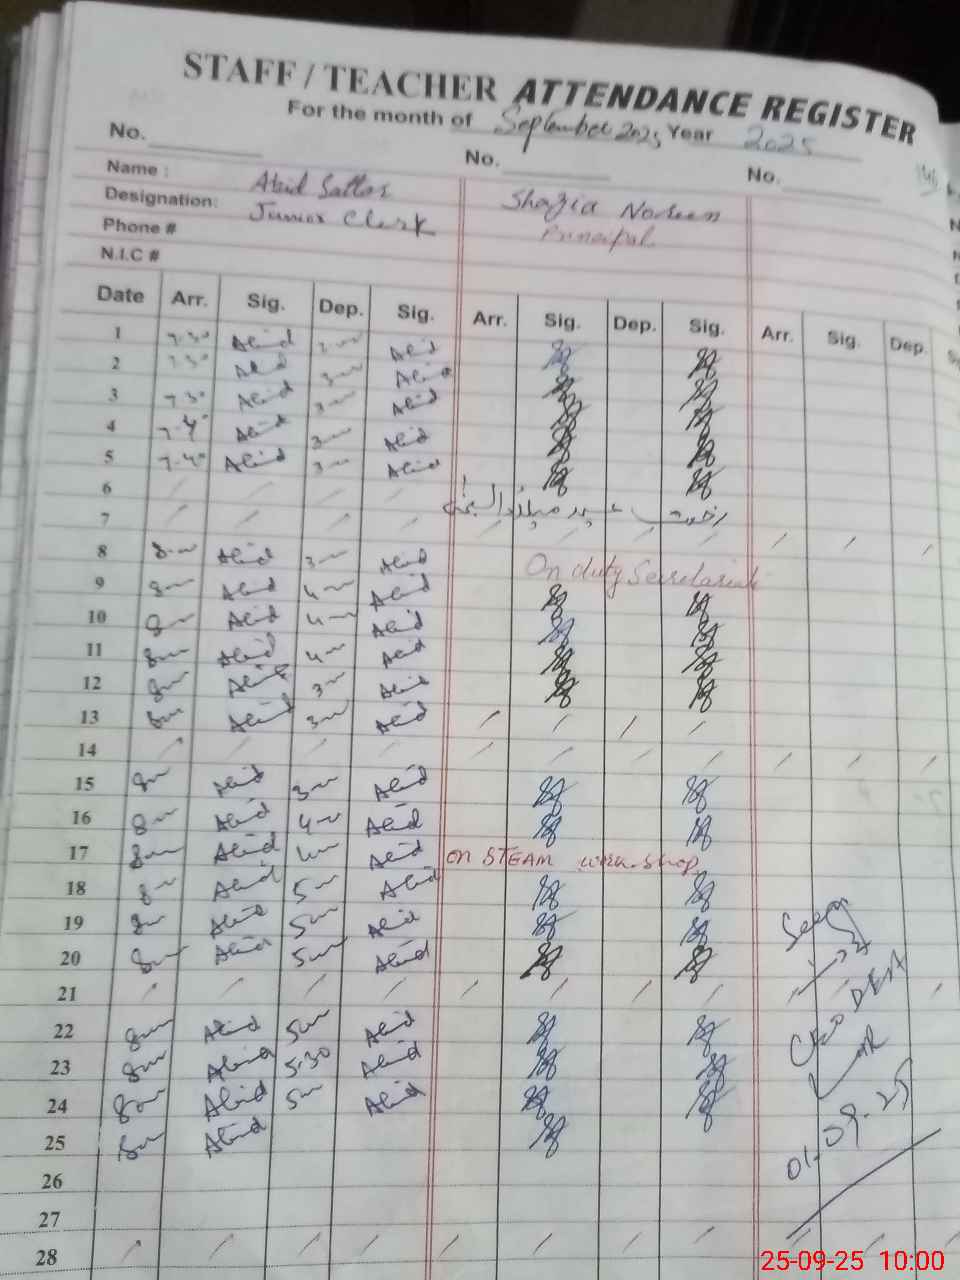 STAFF / TEACHER ATTENDANCE REGISTER
For the month of September 2025 Year 2025
No. No. No.
Name : Abid Sattar Shazia Noreen
Designation: Junior Clerk Principal
Phone #
N.I.C #
Date Arr. Sig. Dep. Sig. Arr. Sig. Dep. Sig. Arr. Sig. Dep.
1 7.30 Abid 3 Abid
2 7.30 Abid 3 Abid
3 7.30 Abid 3 Abid
4 7.40 Abid 3 Abid
5 7.40 Abid 3 Abid
6
7
8 8 Abid 3 Abid On duty Secretariat
9 8 Abid 4 Abid
10 8 Abid 4 Abid
11 8 Abid 4 Abid
12 8 Abid 3 Abid
13 8 Abid 3 Abid
14
15 8 Abid 3 Abid
16 8 Abid 4 Abid
17 8 Abid 4 Abid on STEAM work shop
18 8 Abid 5 Abid
19 8 Abid 5 Abid
20 8 Abid 5 Abid
21
22 8 Abid 5 Abid
23 8 Abid 5.30 Abid
24 8 Abid 5 Abid
25 8 Abid
26
27
28
Seen
CEO DEA
01-09-25
25-09-25 10:00